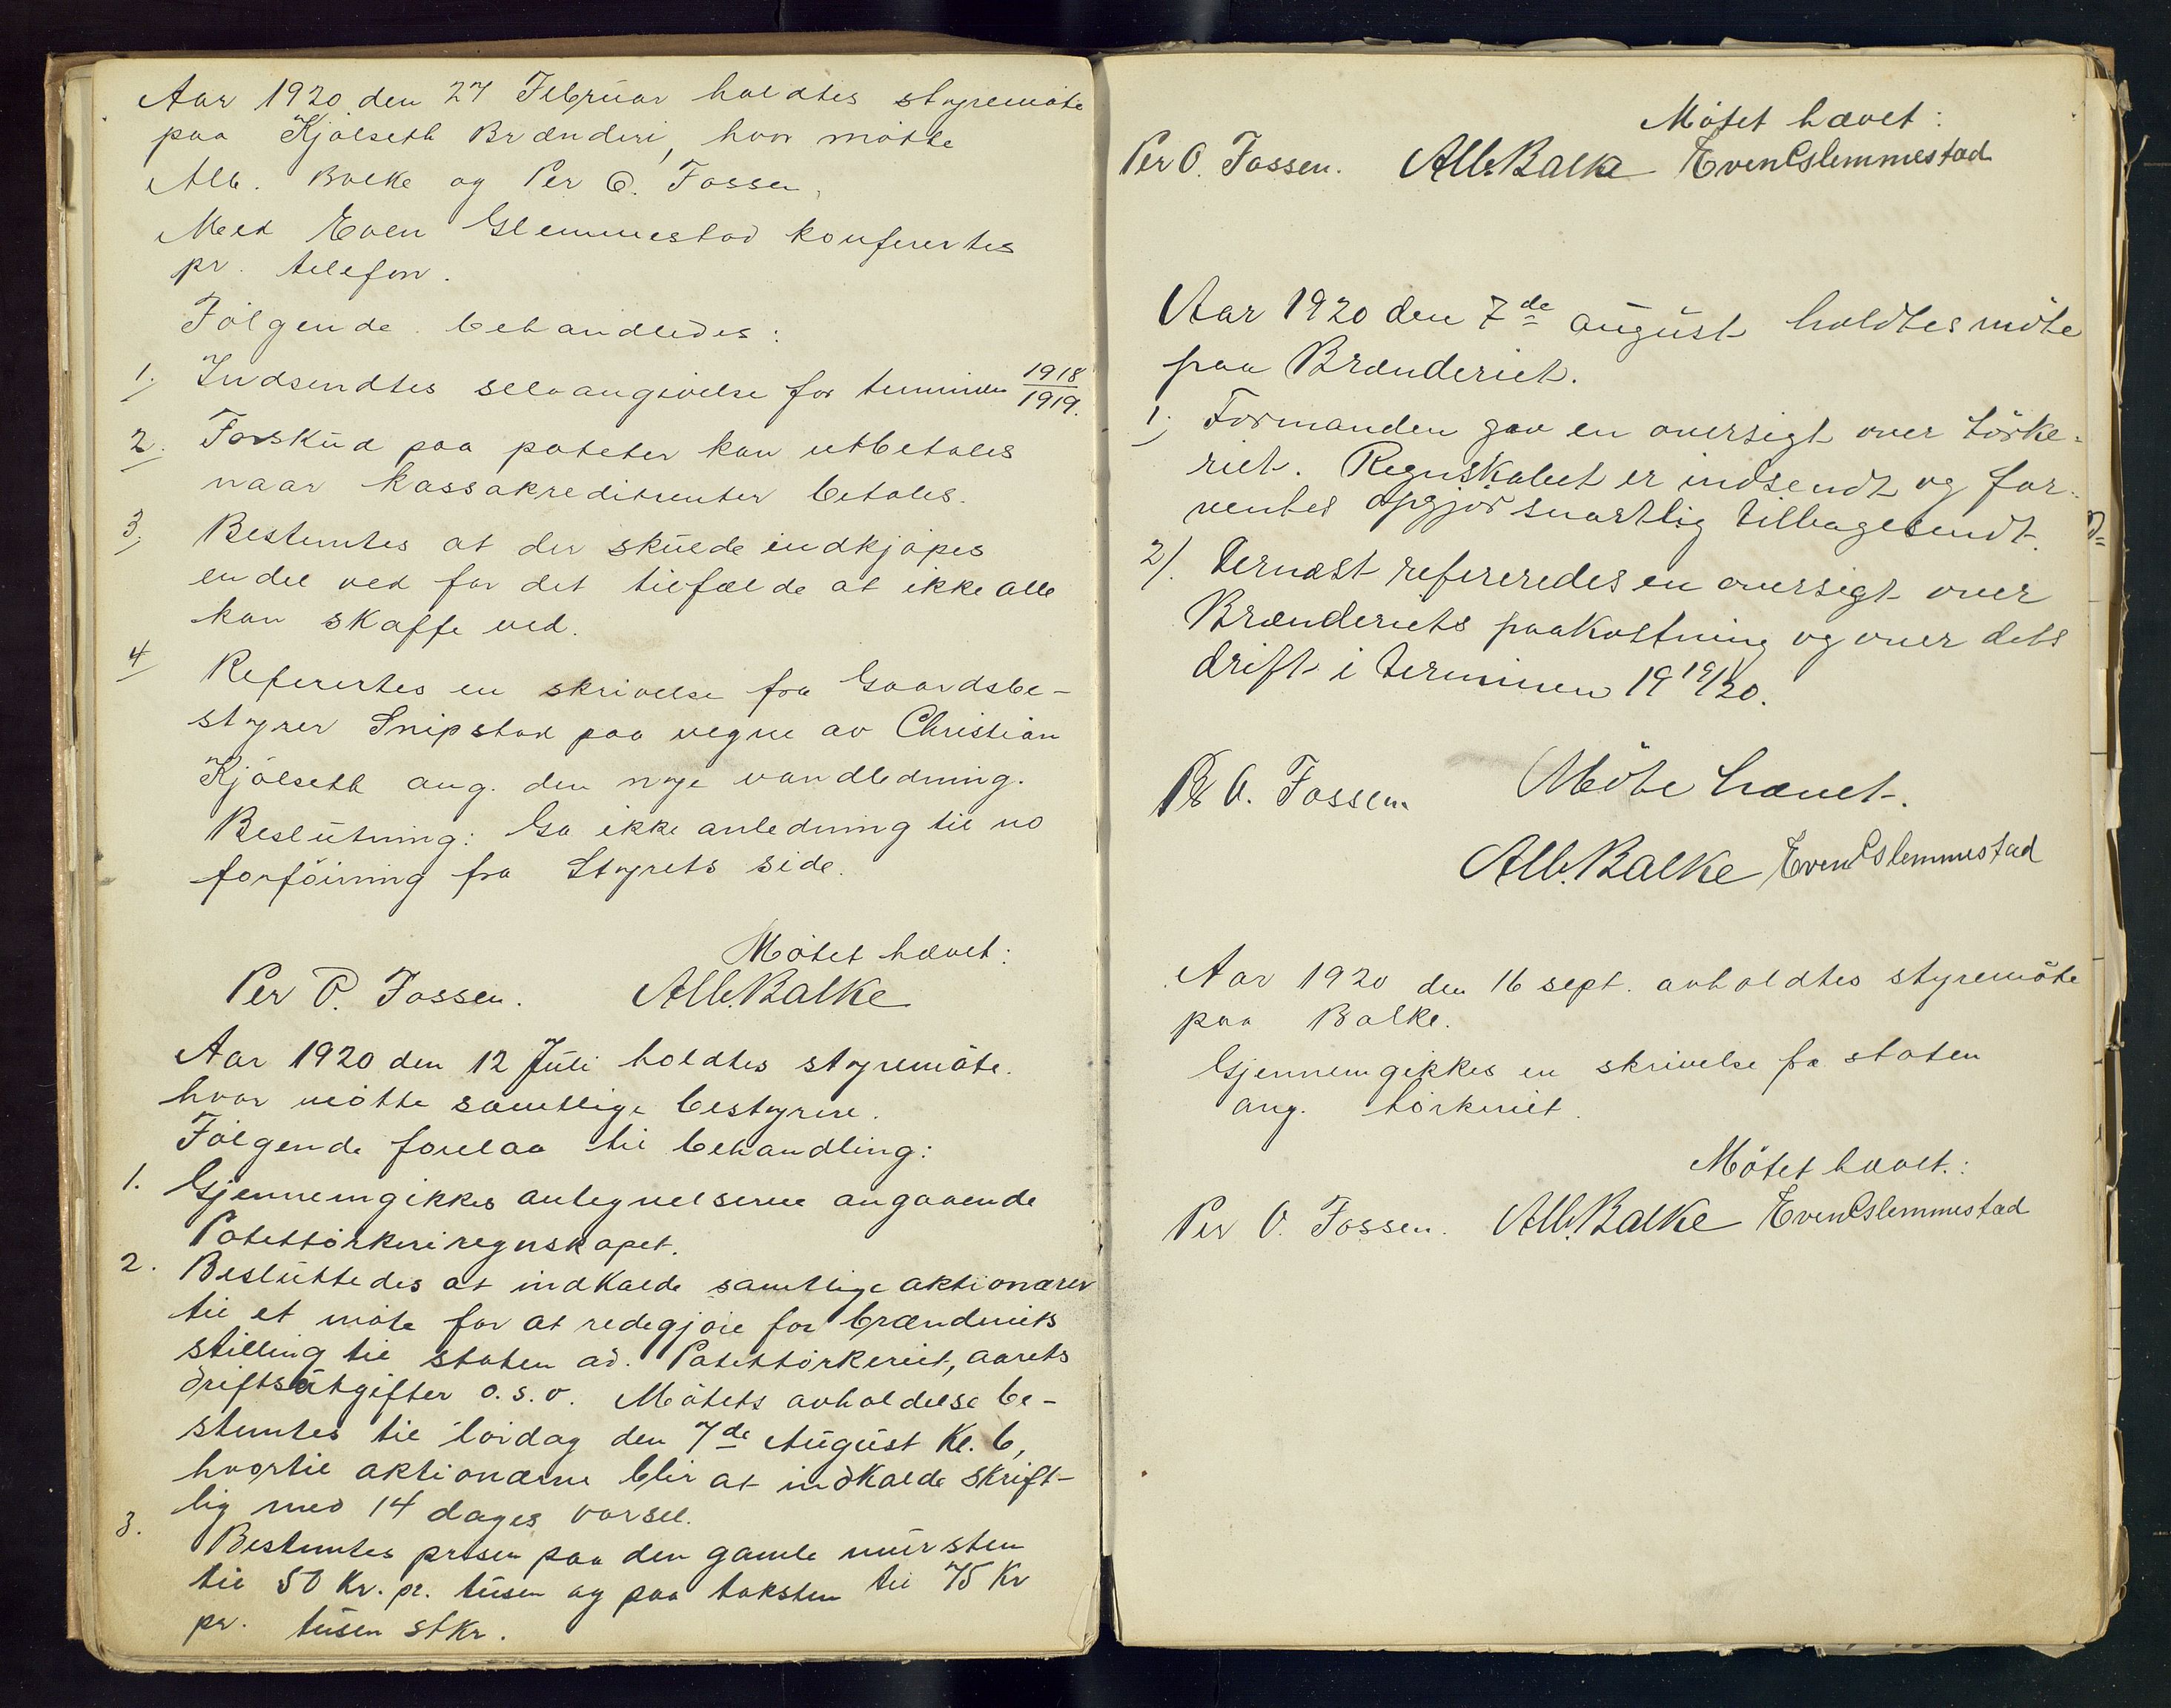 Aar 1920 den 27 Februar holdtes styremöte
paa Kjölseth Brænderi, hvor mötte
Alb. Balke og Per O. Fossen,
Med Even Glemmestad konferertes
pr. telefon.
Fölgende behandledes:
1. Indsendtes selvangivelse for terminen 1918/1919.
2. Forskud paa poteter kan utbetales
naar kassakreditrenter betales.
3. Bestemtes at der skulde indkjöpes
endel ved for det tilfælde at ikke alle
kan skaffe ved.
4 Referertes en skrivelse fra Gaardsbe-
styrer Snipstad paa vegne av Christian
Kjölseth ang. den nye vandledning.
Beslutning: Ga ikke anledning til no
forföining fra Styrets side.
Mötet hævet:
Per O. Fossen. Alb. Balke
Aar 1920 den 12 Juli holdtes styremöte.
hvor mötte samtlige bestyrere.
Fölgende forelaa til behandling:
1. Gjennemgikkes antegnelserne angaaende
Potettörkeriregnskapet.
2. Besluttedes at indkalde samtlige aktionærer
til et möte for at redegjöre for brænderiets
stilling til staten ad. Potettörkeriet, aarets
driftsutgifter o.s.v. Mötets avholdelse be-
stemtes til lördag den 7de August Kl. 6,
hvortil aktionærne blir at indkalde skrift-
lig med 14 dages varsel.
3. Bestemtes prisen paa den gamle mursten
til 50 Kr. pr. tusen og paa taksten til 75 Kr
pr. tusen stkr.
Mötet hævet:
Per O. Fossen. Alb. Balke Even Glemmestad
Aar 1920 den 7de august holdtes möte
paa Brænderiet.
1. Formanden gav en oversigt over törke-
riet. Regnskabet er indsendt og for-
ventes opgjör snartlig tilbagesendt.
2). Dernæst refereredes en oversigt over
Brænderiets paakostning og over dets
drift i terminen 1919/20.
Möte hævet.
Per O. Fossen
Alb. Balke Even Glemmestad
Aar 1920 den 16 sept. avholdtes styremöte
paa Balke.
Gjennemgikkes en skrivelse fra staten
ang. törkeriet.
Mötet hævet.:
Per O. Fossen. Alb. Balke Even Glemmestad